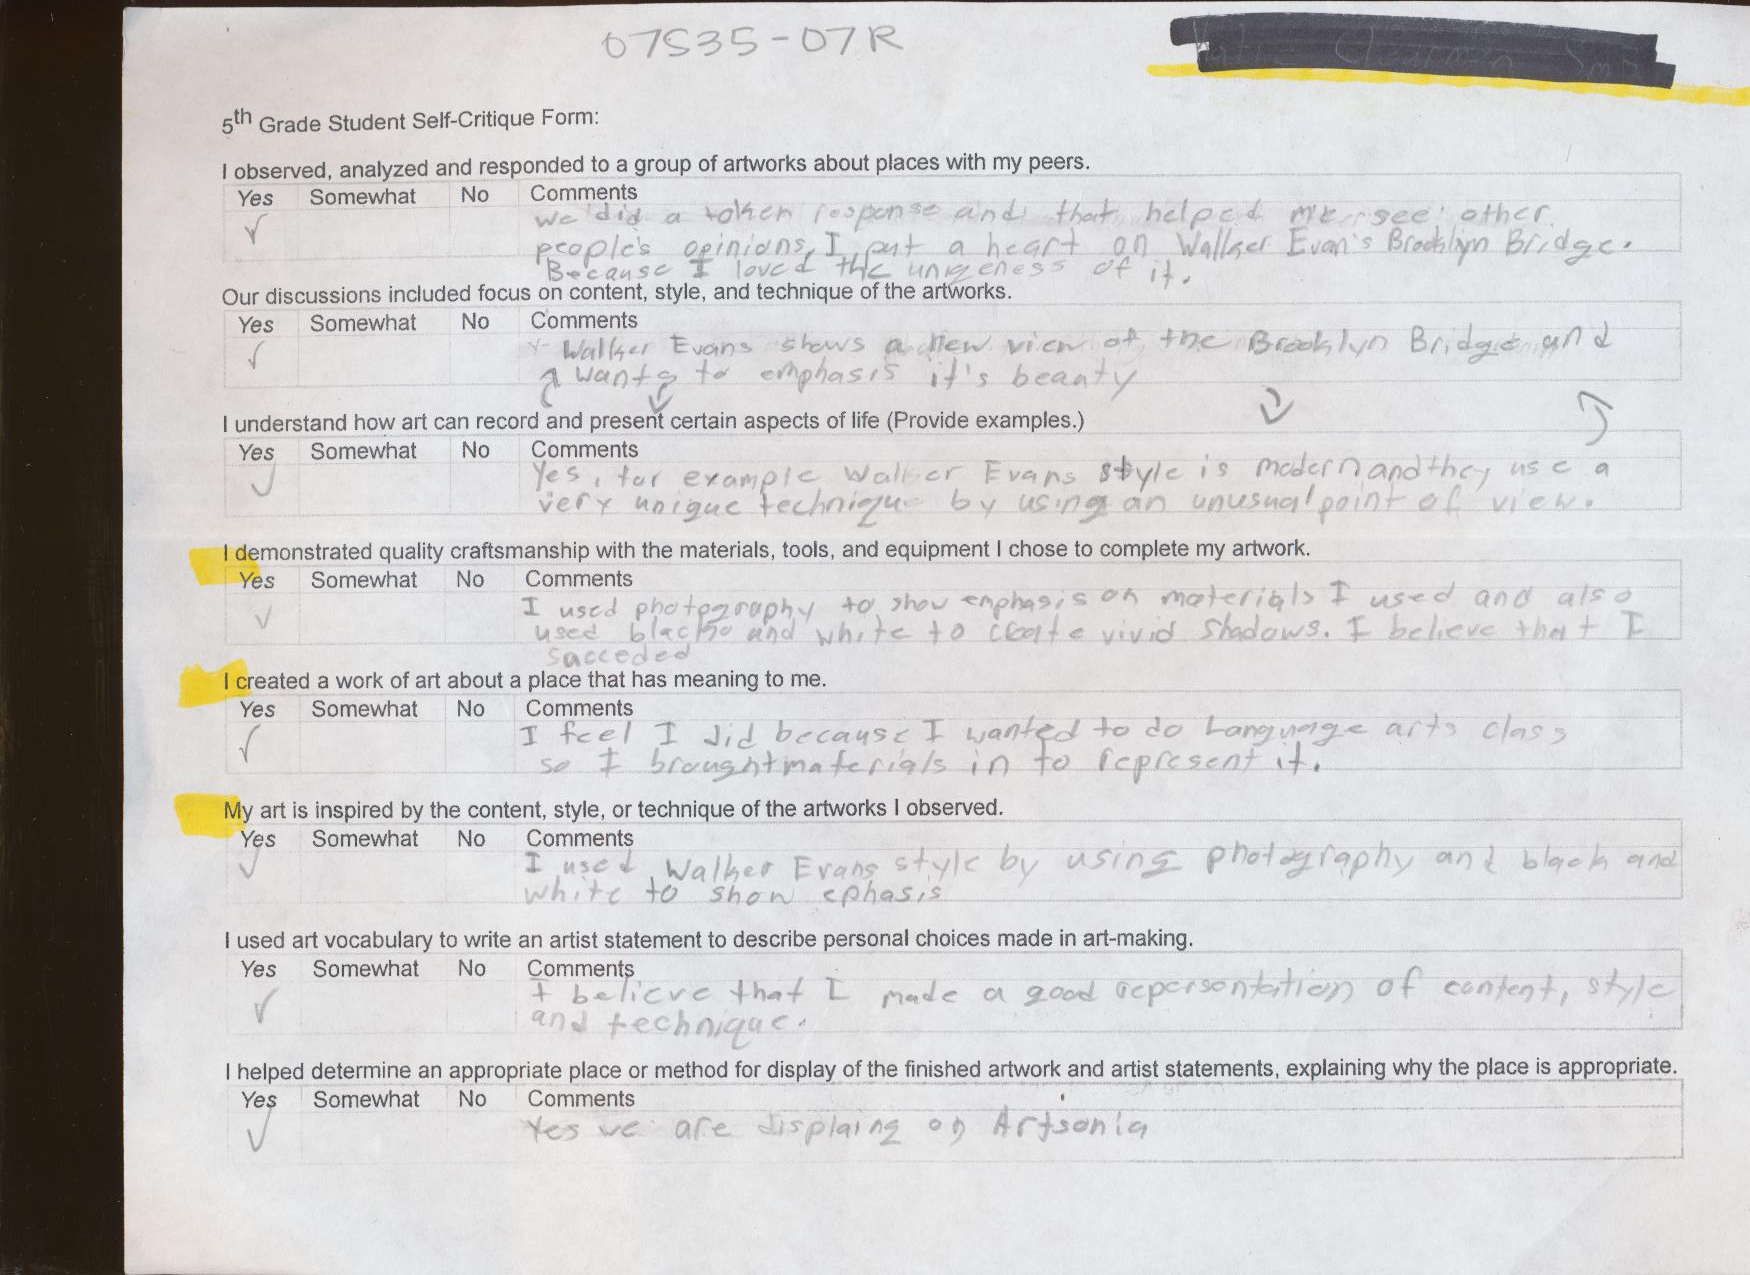 07S35-07R
5th Grade Student Self-Critique Form:
I observed, analyzed and responded to a group of artworks about places with my peers.
Yes Somewhat No Comments
✓ we did a token response and that helped me see other
people's opinions, I put a heart on Walker Evan's Brooklyn Bridge.
Because I loved the uniqeness of it.
Our discussions included focus on content, style, and technique of the artworks.
Yes Somewhat No Comments
✓ Walker Evans shows a new view of the Brooklyn Bridge and
wants to emphasis it's beauty
I understand how art can record and present certain aspects of life (Provide examples.)
Yes Somewhat No Comments
✓ Yes, for example Walker Evans style is modern and they use a
very unique technique by using an unusual point of view.
I demonstrated quality craftsmanship with the materials, tools, and equipment I chose to complete my artwork.
Yes Somewhat No Comments
✓ I used photography to show emphasis on materials I used and also
used black and white to create vivid shadows. I believe that I
sacceded
I created a work of art about a place that has meaning to me.
Yes Somewhat No Comments
✓ I feel I did because I wanted to do Language arts class
so I brought materials in to represent it.
My art is inspired by the content, style, or technique of the artworks I observed.
Yes Somewhat No Comments
✓ I used Walker Evans style by using photography and black and
white to show ephasis
I used art vocabulary to write an artist statement to describe personal choices made in art-making.
Yes Somewhat No Comments
✓ I believe that I made a good repersontation of content, style
and technique.
I helped determine an appropriate place or method for display of the finished artwork and artist statements, explaining why the place is appropriate.
Yes Somewhat No Comments
✓ Yes we are displaing on Artsonia